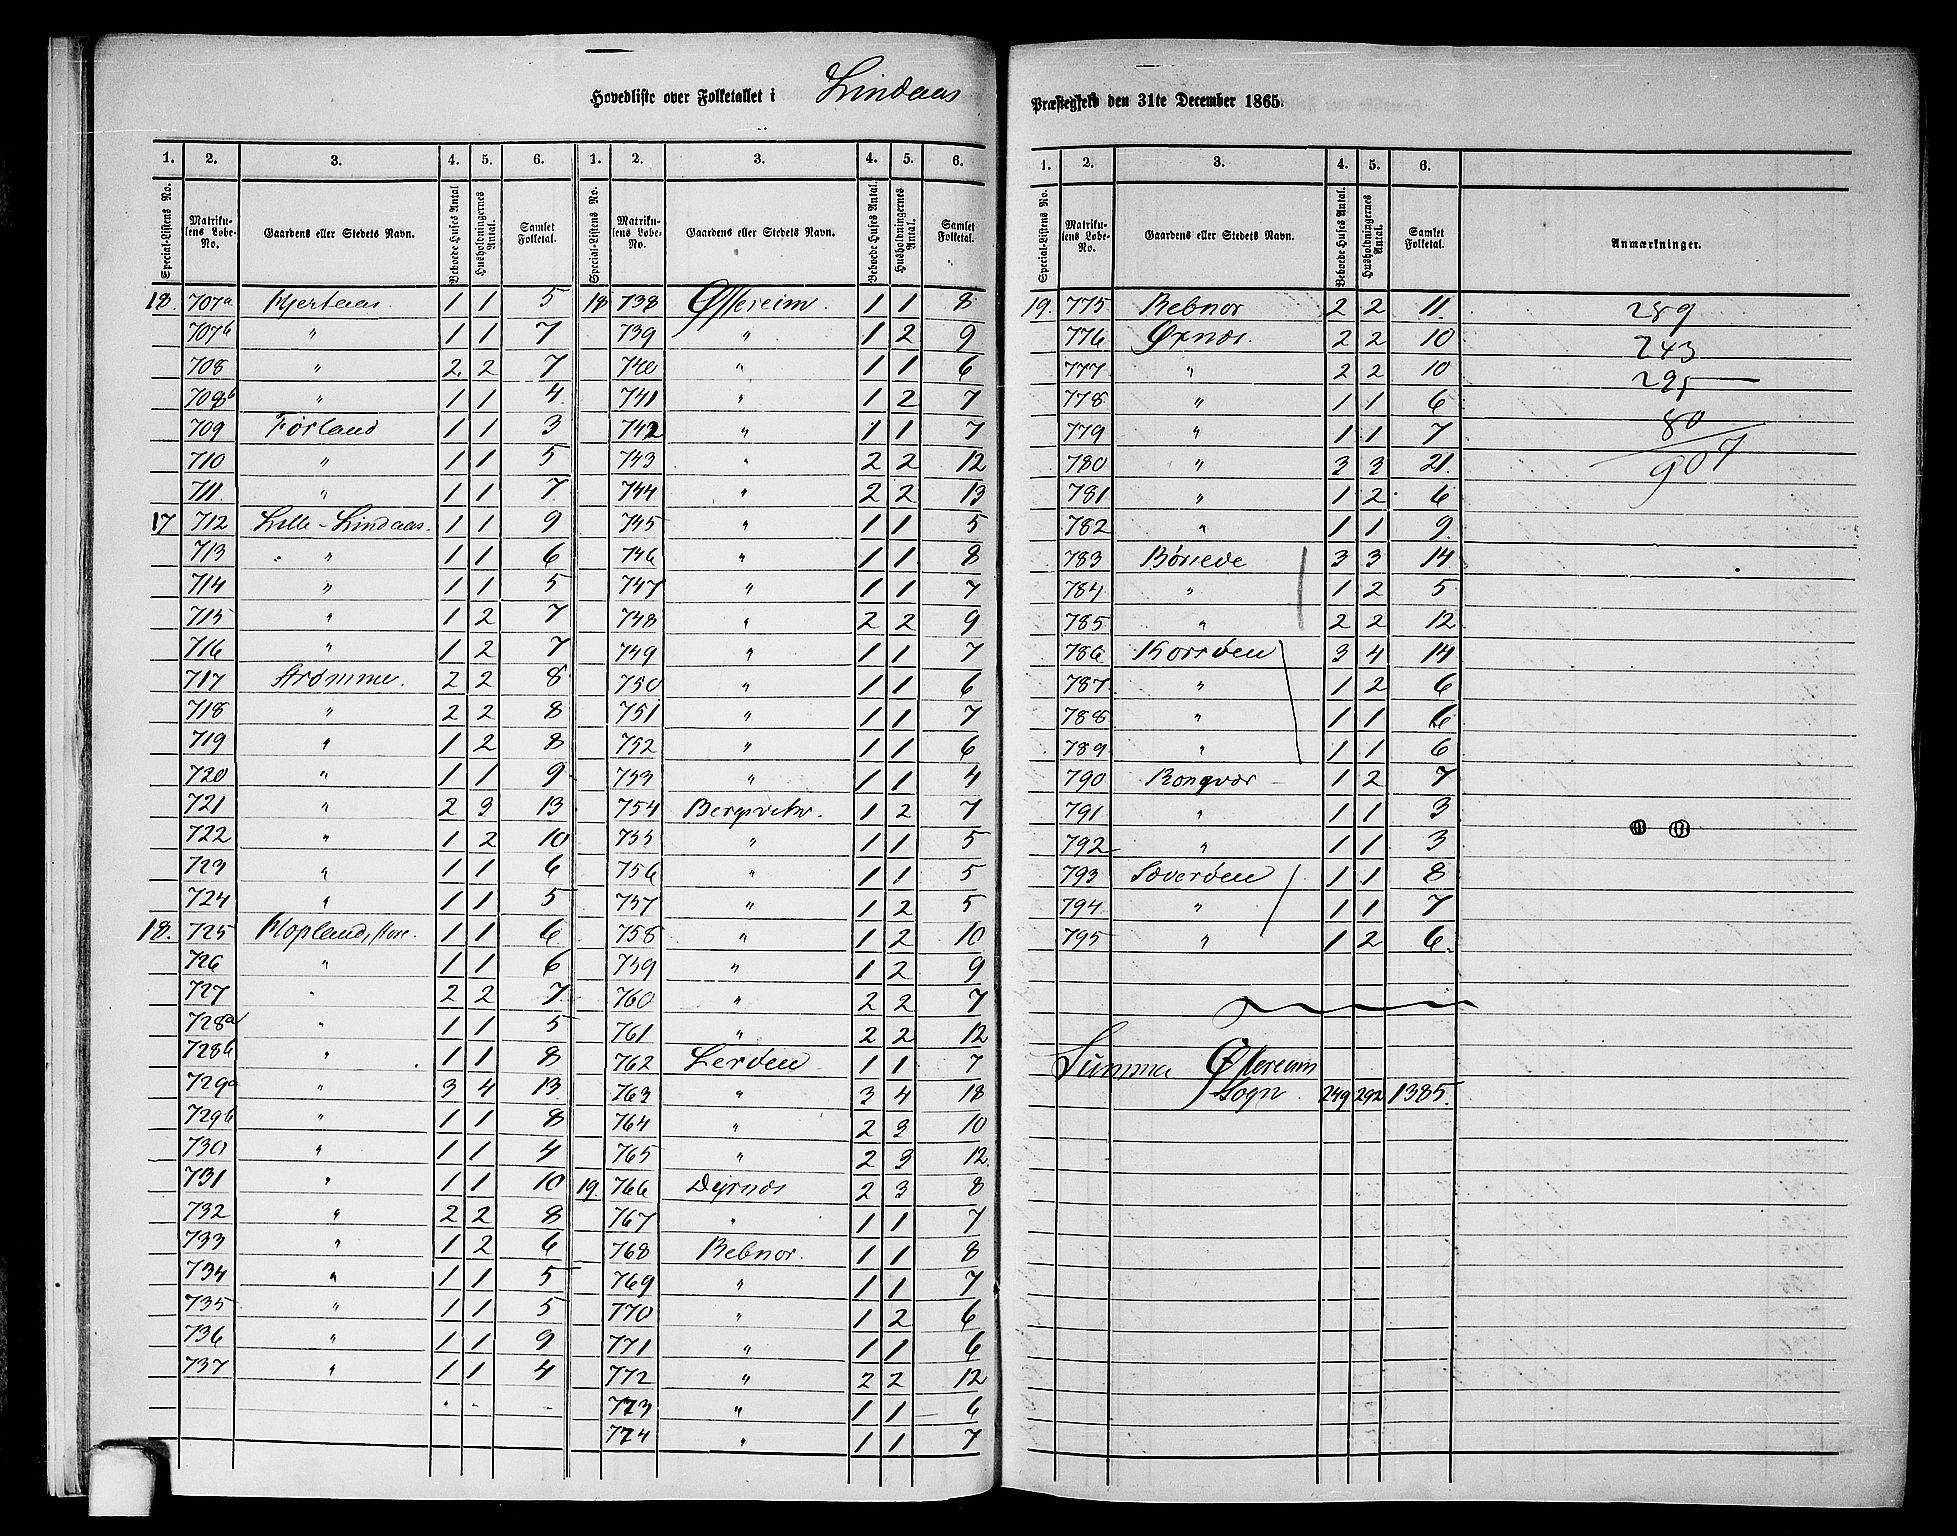 Hovedliste over Folketallet i Lindaas
Præstegjeld den 31te December 1865.
1. 2. 3. 4. 5. 6. 1. 2. 3. 4. 5. 6.
Special-Listens No. Matrikulens Løbe-No. Gaardens eller Stedets Navn. Beboede Huses Antal Husholdningernes Antal. Samlet Folketal. Special-Listens No. Matrikulens Løbe-No. Gaardens eller Stedets Navn. Beboede Huses Antal. Husholdningernes Antal. Samlet Folketal.
18. 707a Hjertaas 1 1 5
707b " 1 1 7
708 " 2 2 7
708b " 1 1 4
709 Førland 1 1 3
710 " 1 1 5
711 " 1 1 7
17 712 Lille-Lindaas. 1 1 9
713 " 1 1 6
714 " 1 1 5
715 " 1 2 7
716 " 1 2 7
717 Strømme. 2 2 8
718 " 2 2 8
719 " 1 2 8
720 " 1 1 9
721 " 2 3 13
722 " 1 2 10
723 " 1 1 6
724 " 1 1 5
18. 725 Hopland, store. 1 1 6
726 " 1 1 6
727 " 2 2 7
728a " 1 1 5
728b " 1 1 8
729a " 3 4 13
729b " 1 1 8
730 " 1 1 4
731 " 1 1 10
732 " 2 2 8
733 " 1 2 6
734 " 1 1 5
735 " 1 1 5
736 " 1 1 9
737 " 1 1 4
18 738 Østereim. 1 1 8
739 " 1 2 9
740 " 1 1 6
741 " 1 2 7
742 " 1 1 7
743 " 2 2 12
744 " 2 2 13
745 " 1 1 5
746 " 1 1 8
747 " 1 1 7
748 " 2 2 9
749 " 1 1 7
750 " 1 1 6
751 " 1 1 7
752 " 1 1 6
753 " 1 1 4
754 Bergsvikn. 1 2 7
755 " 1 1 5
756 " 1 1 5
757 " 1 2 5
758 " 1 2 10
759 " 1 2 9
760 " 2 2 7
761 " 2 2 12
762 Lerøen 1 1 7
763 " 3 4 18
764 " 2 3 10
765 " 2 3 12.
19. 766 Dyrnæs 2 3 8
767 " 1 1 7
768 Bebnor. 1 1 8
769 " 1 1 7
770 " 1 2 6
771 " 1 1 6
772 " 2 2 12
773 " 1 1 6
774 " 1 1 7
1. 2. 3. 4. 5. 6.
Special-Listens No. Matrikulens Løbe-No. Gaardens eller Stedets Navn. Beboede Huses Antal. Husholdningernes Antal. Samlet Folketal. Anmærkninger.
19. 775 Bebnor 2 2 11. 289
776 Øxnæs. 2 2 10 243
777 " 2 2 10 295
778 " 1 1 6 80
779 " 1 1 7 907
780 " 3 3 21.
781 " 1 2 6
782 " 1 1 9.
783 Børilde 3 3 14
784 " 1 2 5
785 " 2 2 12
786 Korsøen 3 4 14
787 " 1 2 6
788 " 1 1 6
789 " 1 1 6
790 Rongvær 1 2 7
791 " 1 1 3
792 " 1 1 3
793 Sæverøen 1 1 8
794 " 1 1 7
795 " 1 2 6.
Summa Østereim
Sogn 249 292 1385.